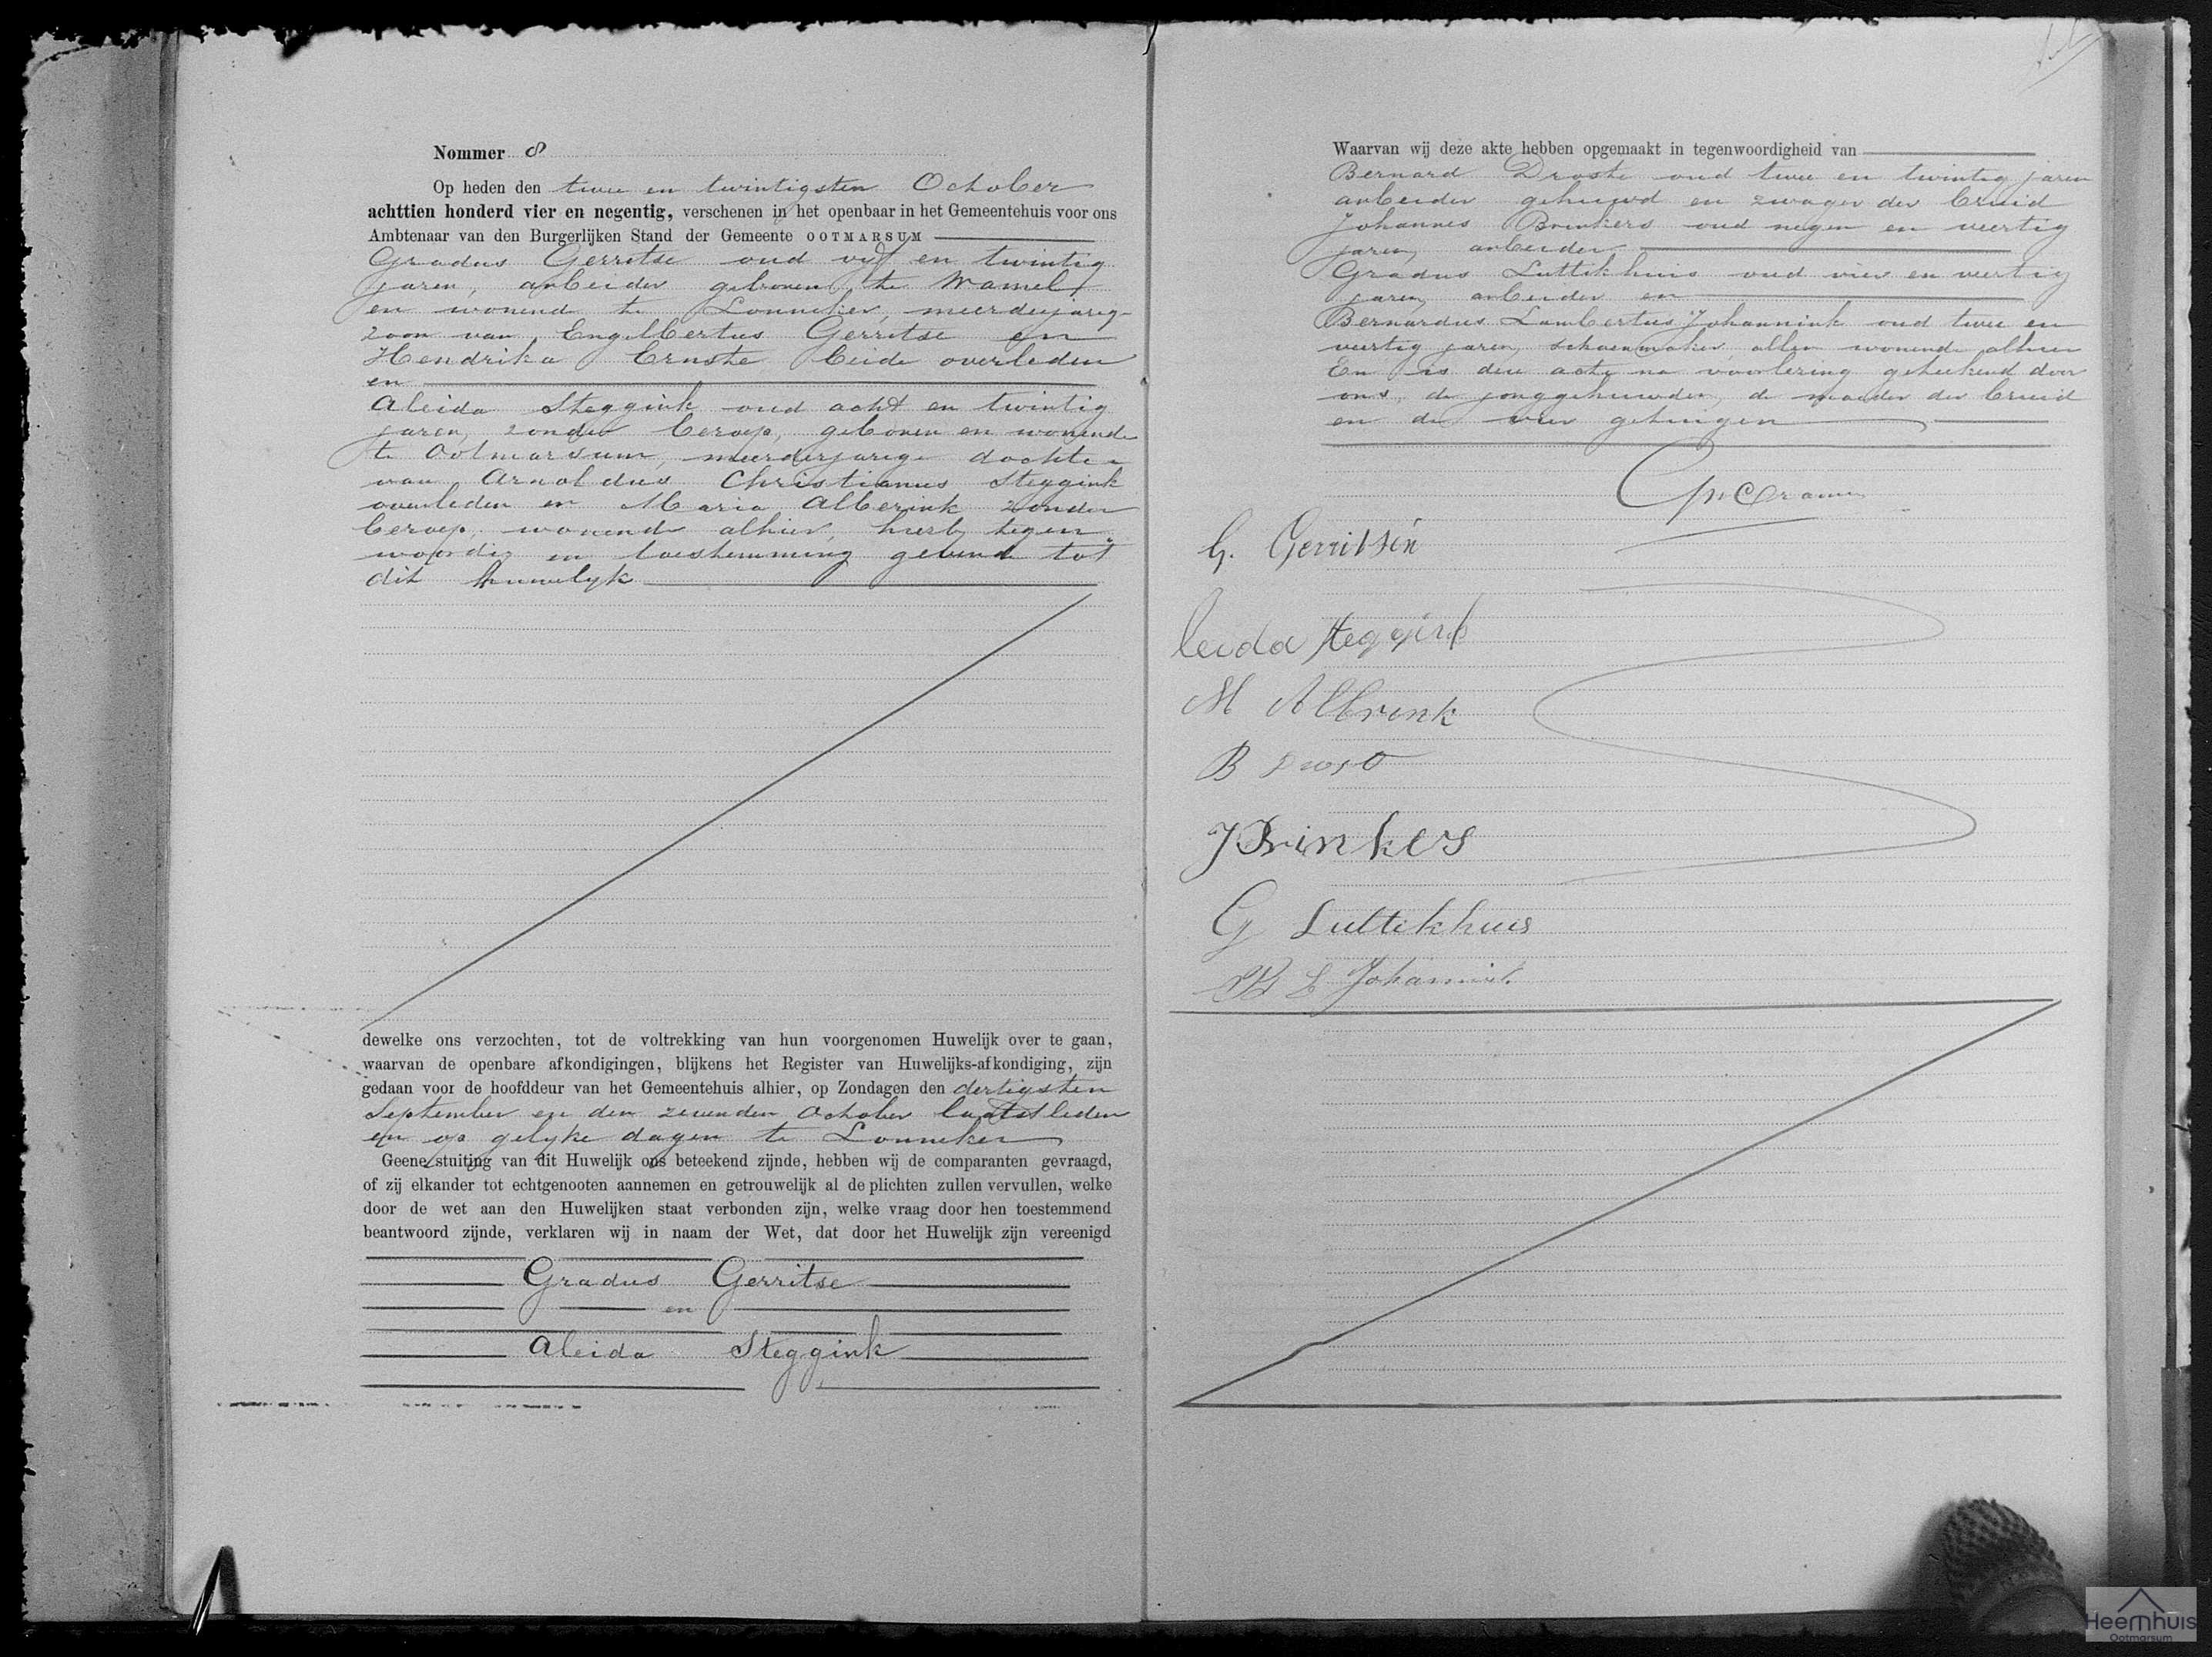 Nommer 8
Op heden den twee en twintigsten October
achttien honderd vier en negentig, verschenen in het openbaar in het Gemeentehuis voor ons
Ambtenaar van den Burgerlijken Stand der Gemeente OOTMARSUM
Gradus Gerritse oud vijf en twintig
jaren, arbeider geboren te Wamel
en wonende te Lonneker, meerderjarig
zoon van Engelbertus Gerritse en
Hendrika Ernste beide overleden
en
Aleida Steggink oud acht en twintig
jaren, zonder beroep, geboren en wonende
te Ootmarsum, meerderjarige dochter
van Arnoldus Christianus Steggink
overleden en Maria Alberink zonder
beroep, wonende alhier, hierbij tegen
woordig en toestemming gevend tot
dit huwelijk
dewelke ons verzochten, tot de voltrekking van hun voorgenomen Huwelijk over te gaan,
waarvan de openbare afkondigingen, blijkens het Register van Huwelijks-afkondiging, zijn
gedaan voor de hoofddeur van het Gemeentehuis alhier, op Zondagen den dertigsten
September en den zevenden October laatstleden
en op gelijke dagen te Lonneker
Geene stuiting van dit Huwelijk ons beteekend zijnde, hebben wij de comparanten gevraagd,
of zij elkander tot echtgenooten aannemen en getrouwelijk al de plichten zullen vervullen, welke
door de wet aan den Huwelijken staat verbonden zijn, welke vraag door hen toestemmend
beantwoord zijnde, verklaren wij in naam der Wet, dat door het Huwelijk zijn vereenigd
Gradus Gerritse
en
Aleida Steggink
Waarvan wij deze akte hebben opgemaakt in tegenwoordigheid van
Bernard Droste oud twee en twintig jaren
arbeider gehuwd en zwager der bruid
Johannes Brinkers oud negen en veertig
jaren, arbeider
Gradus Luttikhuis oud vier en veertig
jaren, arbeider en
Bernardus Lambertus Johannink oud twee en
veertig jaren, schoenmaker, allen wonende alhier
En is deze acte na voorlezing geteekend door
ons, de jonggehuwden, de moeder der bruid
en de vier getuigen
G. Gerritsen
leida Steggink
M Albrink
B Drost
J Brinkers
G Luttikhuis
B L Johannink
Heemhuis
Ootmarsum